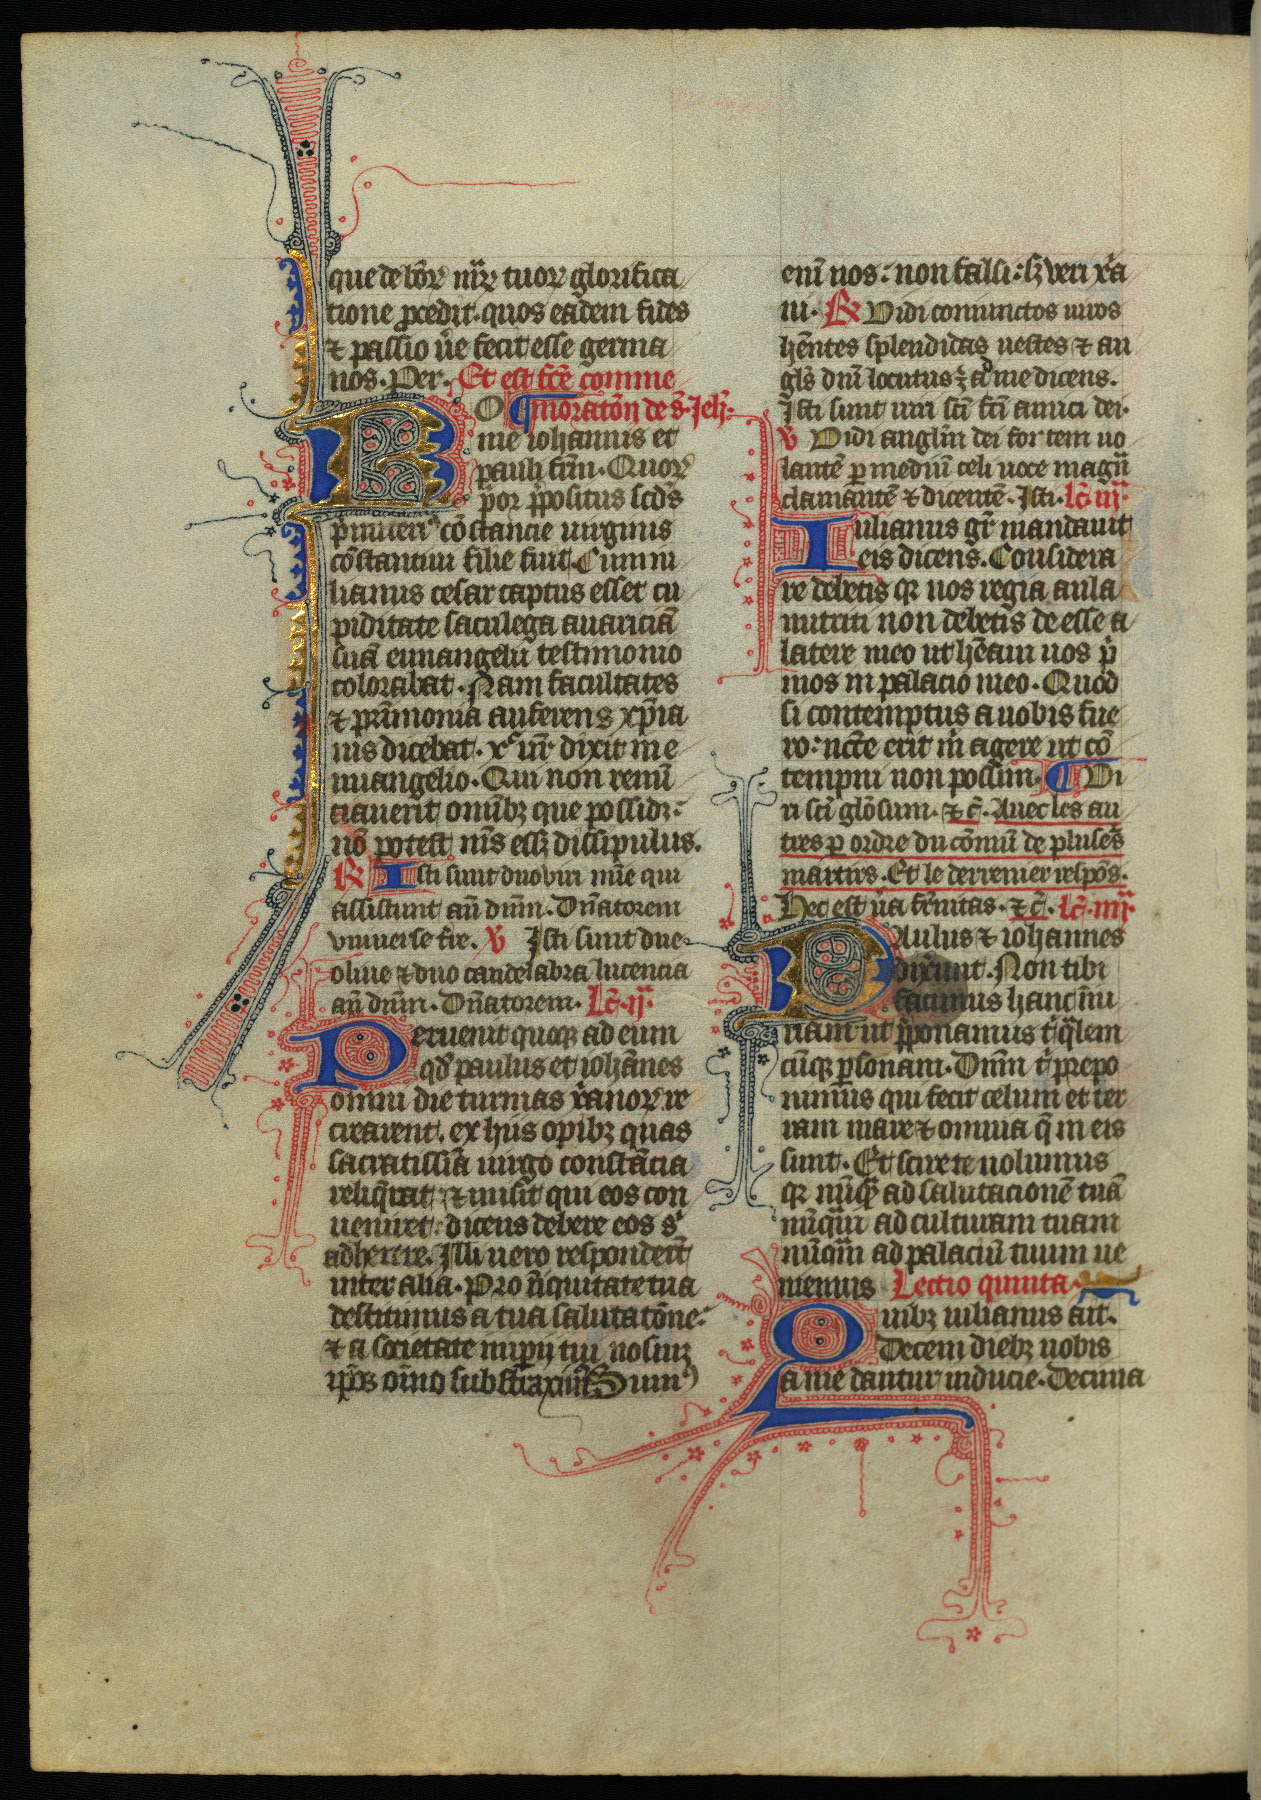 que de bo̅ꝝ mr̅ꝝ tuoꝝ glorifica
tione ꝓcedit. quos eadem fides
⁊ passio u̅e fecit esse germa
nos. Per. Et est fc̅e comme
O ¶ moraco̅n de s. Jeh̅.
me iohannis et
pauli fr̅m. Quoꝝ
por p̅positus scd̅s
p̅miceri9 co̅stancie uirginis
co̅stantini filie fuit. Cum iu
lianus cesar captus esset cu
piditate sacrilega auaricia̅
sua̅ euuangelii testimonio
colorabat. Nam facultates
⁊ pr̅imonia auferens xp̅ia
nis dicebat. xp̅c ur̅ dixit in e
uuangelio. Qui non renu̅
ciauerit omnibꝫ que possidꝫ:
no̅ potest m̅s esse dissipulus.
℟ Isti sunt duo uiri mi̅e qui
assistunt an̅ dn̅m. Dn̅atorem
vniuerse tr̅e. ℣ Isti sunt due
oliue ⁊ duo candelabra lucencia
an̅ dn̅m. Dn̅atorem. Lc̅. ij.
Peruenit quoqꝫ ad eum
qd̅ paulus et ioha̅nes
omni die turmas xr̅ianoꝝ re
crearent. ex hiis opibꝫ quas
sacratissi̅a uirgo consta̅cia
reliq̅rat. ⁊ misit qui eos con
ueniret: dicens debere eos s̅
adherere. Illi uero responder̅t
inter alia. Pro iniquitate tua
destitimus a tua salutato̅ne:
⁊ a societate imperii tui nosmꝫ
ip̅os om̅no subst̅raxim9. Sum9
eni̅ nos: non falsi: sꝫ ueri xr̅ia
ni. ℟ Vidi coniunctos uiros
he̅ntes splendidas uestes ⁊ an
gl̅s dn̅i locutus ē ad me dicens.
Isti sunt uiri sc̅i fc̅i amici dei.
℣ Vidi angl̅m dei fortem uo
lante̅ ꝑ mediu̅ celi uoce magn̅
clamante̅ ⁊ dicente̅. Isti. Lc̅. iij.
Iulianus gr̅ mandauit
eis dicens. Considera
re debetis qꝛ uos regia aula
nutriti non debetis deesse a
latere meo ut he̅am uos p̅
mos in palacio meo. Quod
si contemptus a uobis fue
ro: nc̅te erit m̅ agere ut co̅
tempni non possim. ¶ Vi
ri sc̅i glo̅sum. ⁊ c̅. Auec les au
tres ꝑ ordre du co̅mu̅ de pluse̅s
martirs. Et le derrenier respo̅s.
Hec est u̅a fr̅nitas. ⁊ c̅. Lc̅. iiij.
Paulus ⁊ iohannes
dixe̅runt. Non tibi
facimus hanc iniu̅
riam ut p̅ponamus t̅ q̅lem
cu̅qꝫ ꝑsonam. Dn̅m t̅ prepo
nimus qui fecit celum et ter
ram mare ⁊ omnia q̅ in eis
sunt. Et scire te uolumus
qꝛ nu̅q̅ ad salutacione̅ tua̅
nu̅q̅m ad culturam tuam
nu̅q̅m ad palaciu̅ tuum ue
niemus Lectio quinta.
Quibꝫ iulianus ait.
Decem diebꝫ uobis
a me dantur inducie. Decima